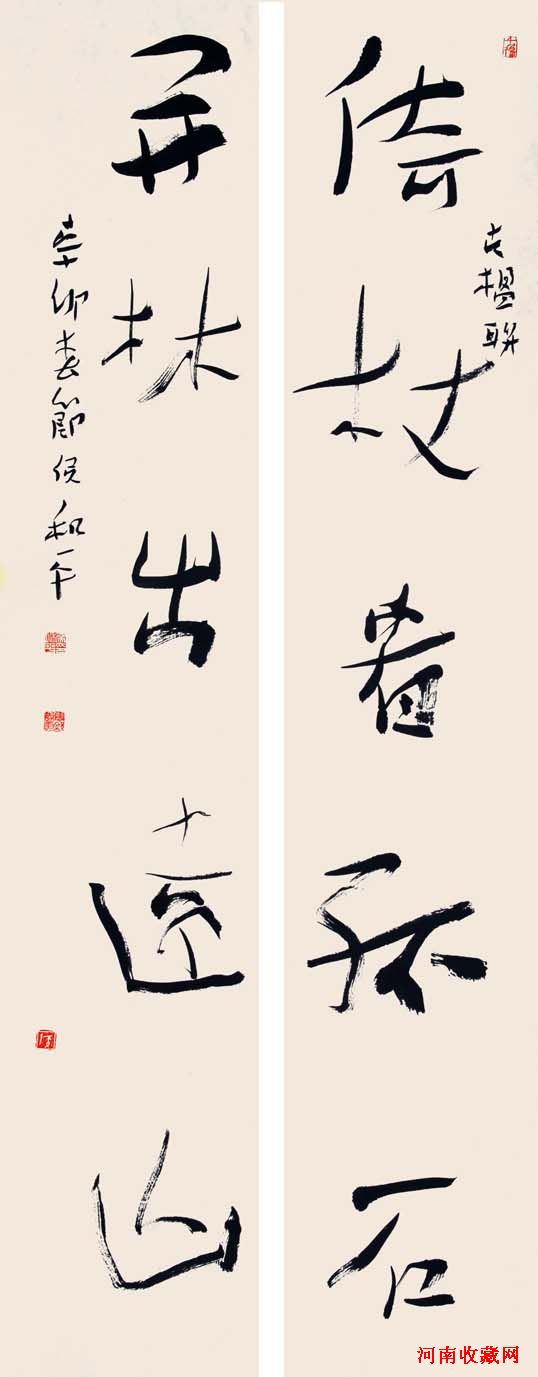 倚杖看孤石
古楹联
开林出远山
辛卯春节侯和平
河南收藏网